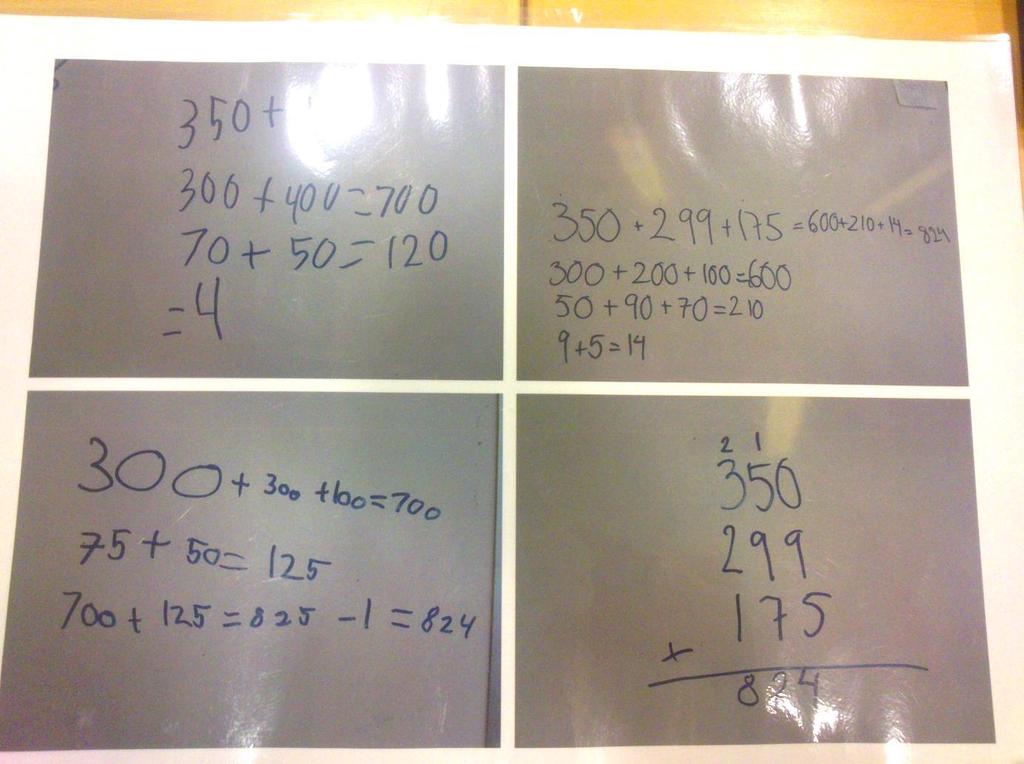 350+
300+400=700
70+50=120
=4
350+299+175=600+210+14=824
300+200+100=600
50+90+70=210
9+5=14
300+300+100=700
75+50=125
700+125=825-1=824
2 1
350
299
175
+
824